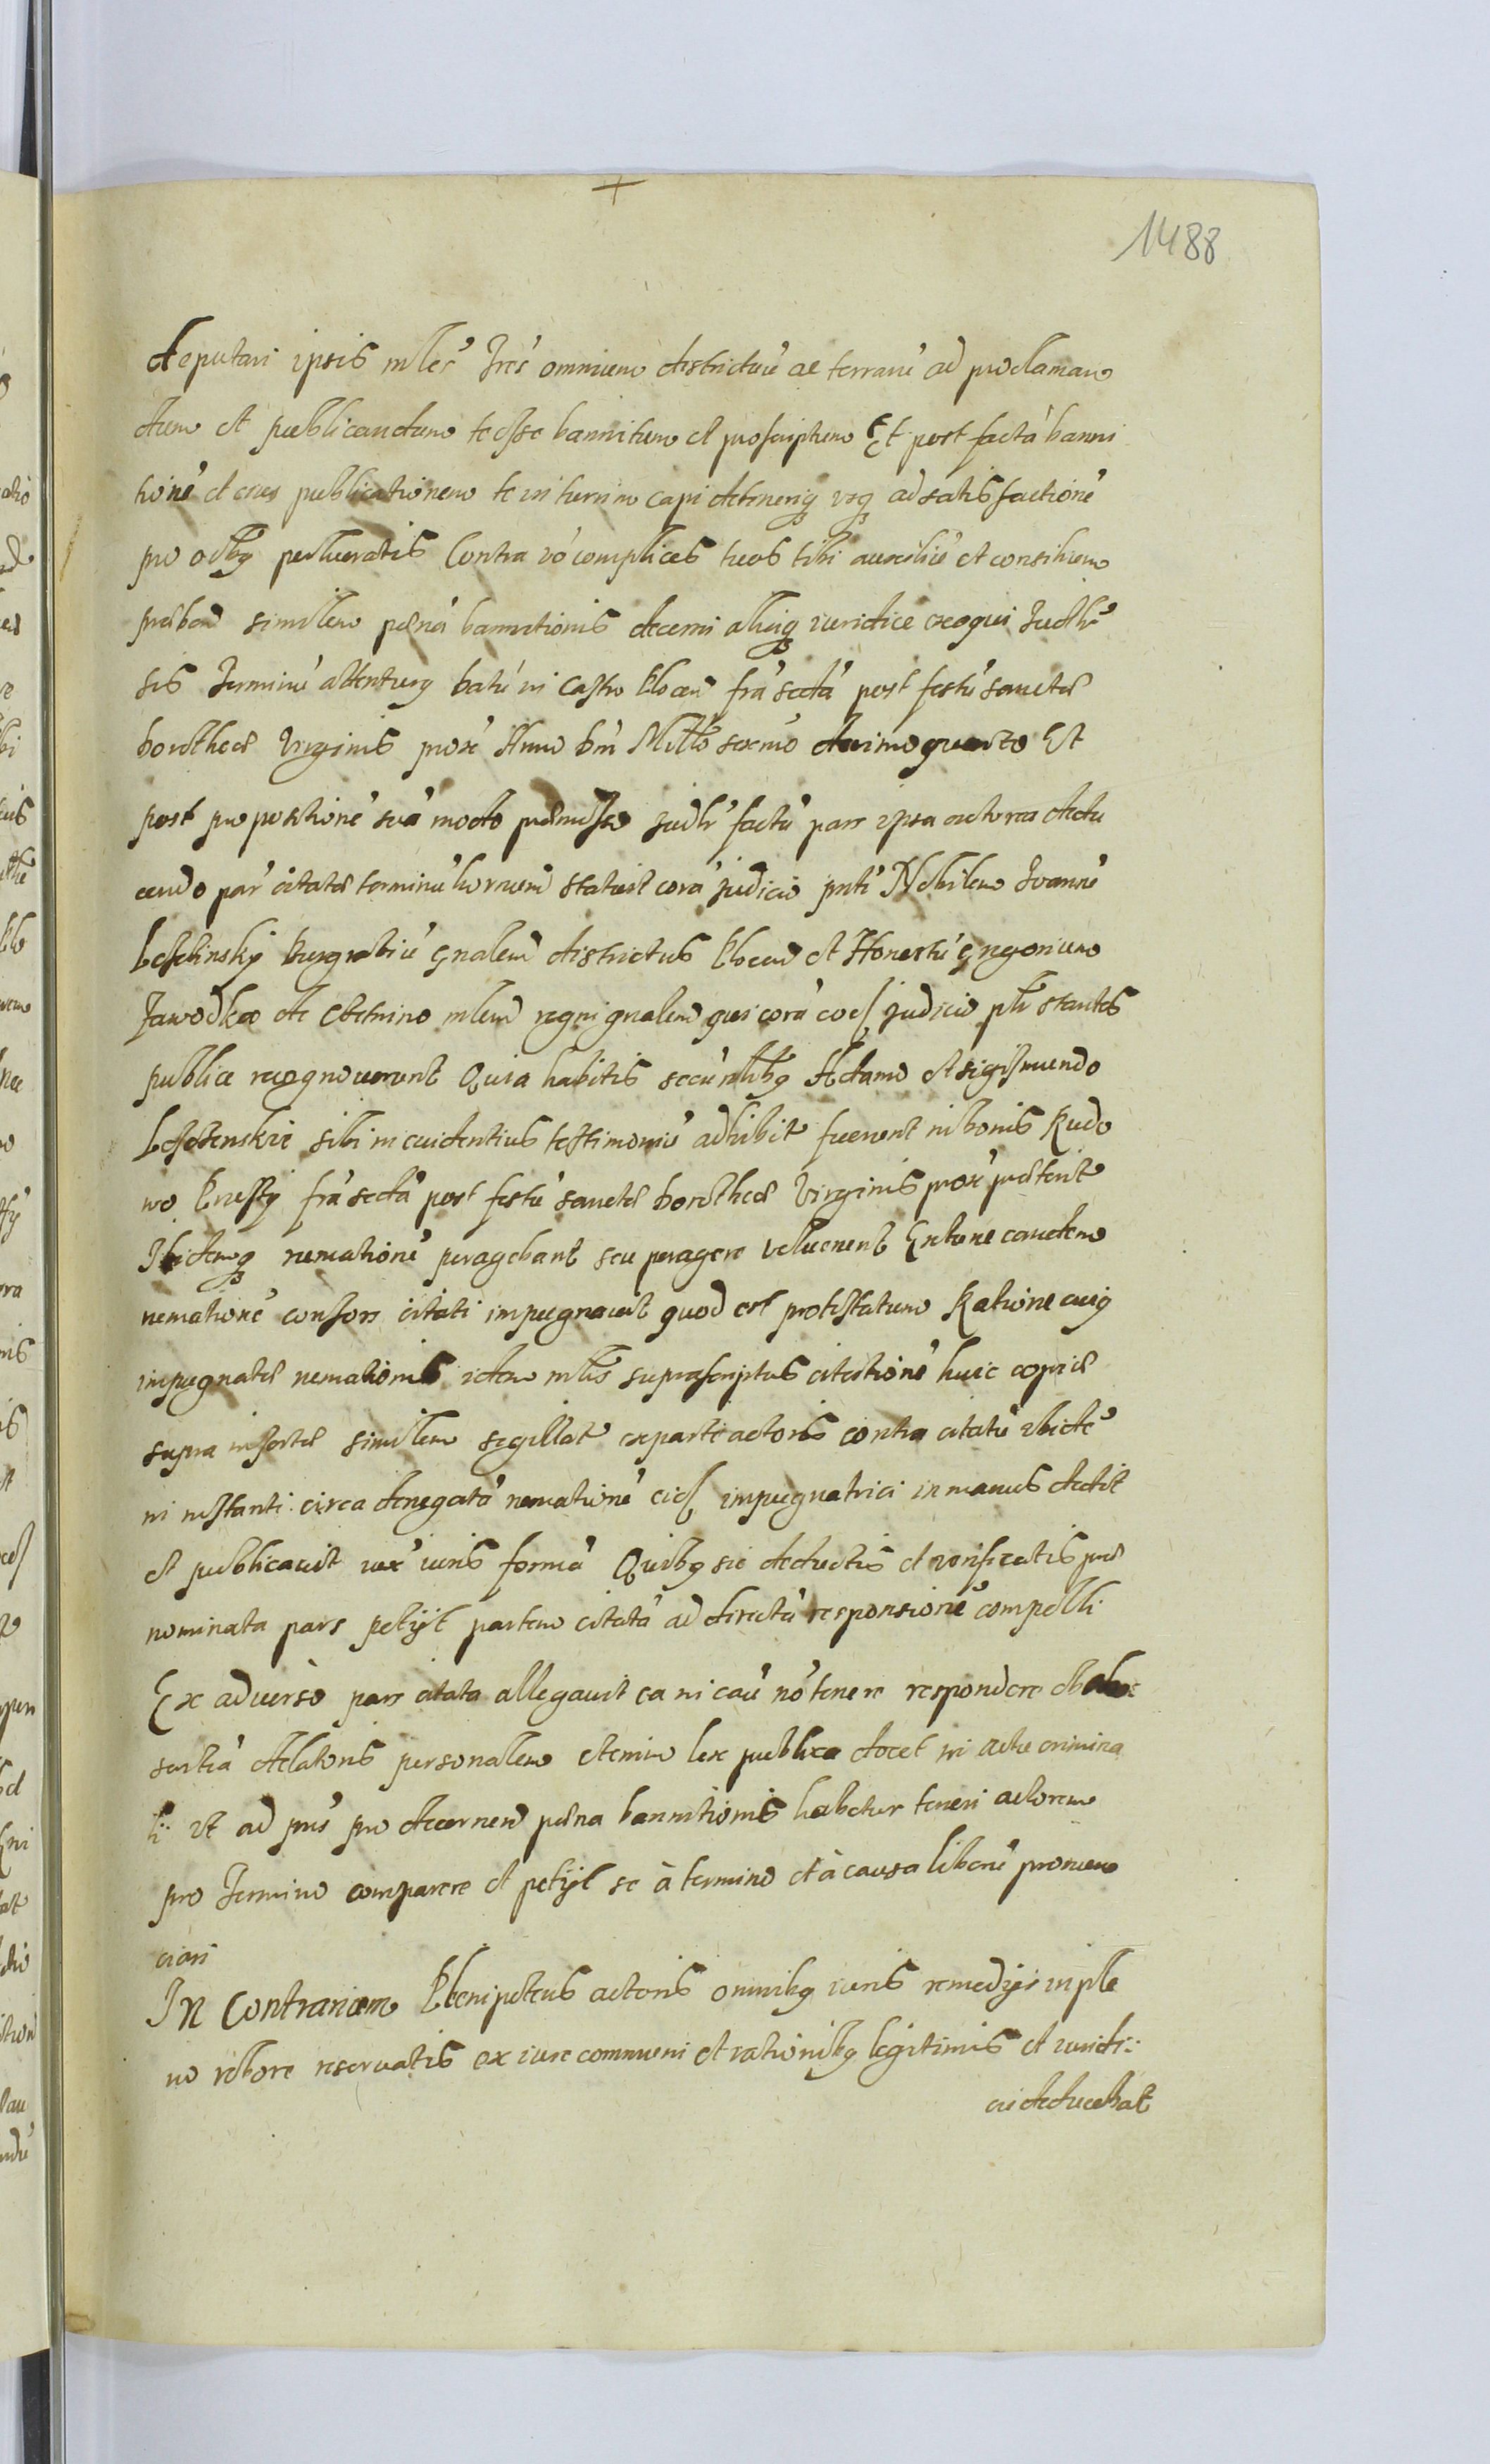 1488
deputari ipsis mles tres omnium districtuu ac terraru ad proclaman
dum et publicandum te esse bannitum et proscriptum Et post factā banni
tionē et eius publicationem te in turrim capi detineriq usq ad satisfactionē
pro oibq perlucratis Contra vo complices tuos tibi auxiliu et consilium
præben similem pænā bannitionis decerni aliaq iuridice exequi Iudlr
sis Terminū attenturq Datū in Castro Plocen fra sextā post festū sanctæ
Dorotheæ Virginis prox Anno Dni Millo sexmo decimoquarto Et
post propositionē suā modo præmisso judlr factā pars ipsa actorea dedu
cendo par citatæ terminū hornum statuit corā judicio pnti Nobilem Ioannē
Burgrabiū gnalem districtus Plocen et Honestū Gregorium
Jawodka de mlem regni gnalem qui corā eod judicio plr stantes
publice recognoverunt Quia habitis secu nlibq Adamo et Sigismundo
sibi in evidentius testimoniū adhibit fuerunt in bonis Rudo
wo Brussy fra sextā post festū sanctæ Dorotheæ Virginis prox præterit
Ibidemq remationē peragebant seu peragere voluerunt Extunc eandem
remationē consors citati impugnavit quod est protestatum Ratione cuiq
impugnatæ remationis idem mlis suprascriptus citationē huic copiæ
supra insertæ similem sigillat ex parte actoris contra citatū ibidē
in instanti circa denegatā remationē eid impugnatrici in manus dedit
et publicavit iux iuris formā Quibq sic deductis et verificatis præ
nominata pars petijt partem citatā ad directā responsionē compelli
Ex adverso pars citata allegavit ea in cau nō tenere respondere ob ab:
sentiā delatoris personalem etenim lex publica docet in actu crimina
li: ut ad pns pro decernen pæna bannitionis habetur teneri actorem
pro Termino comparere et petijt se à termino et à causa liberū pronun
ciari
In Contrarium Plenipotens actoris omnibq iuris remedijs in ple
no robore reservatis ex iure communi et rationibq legitimis et iuridi:
cis deducebat